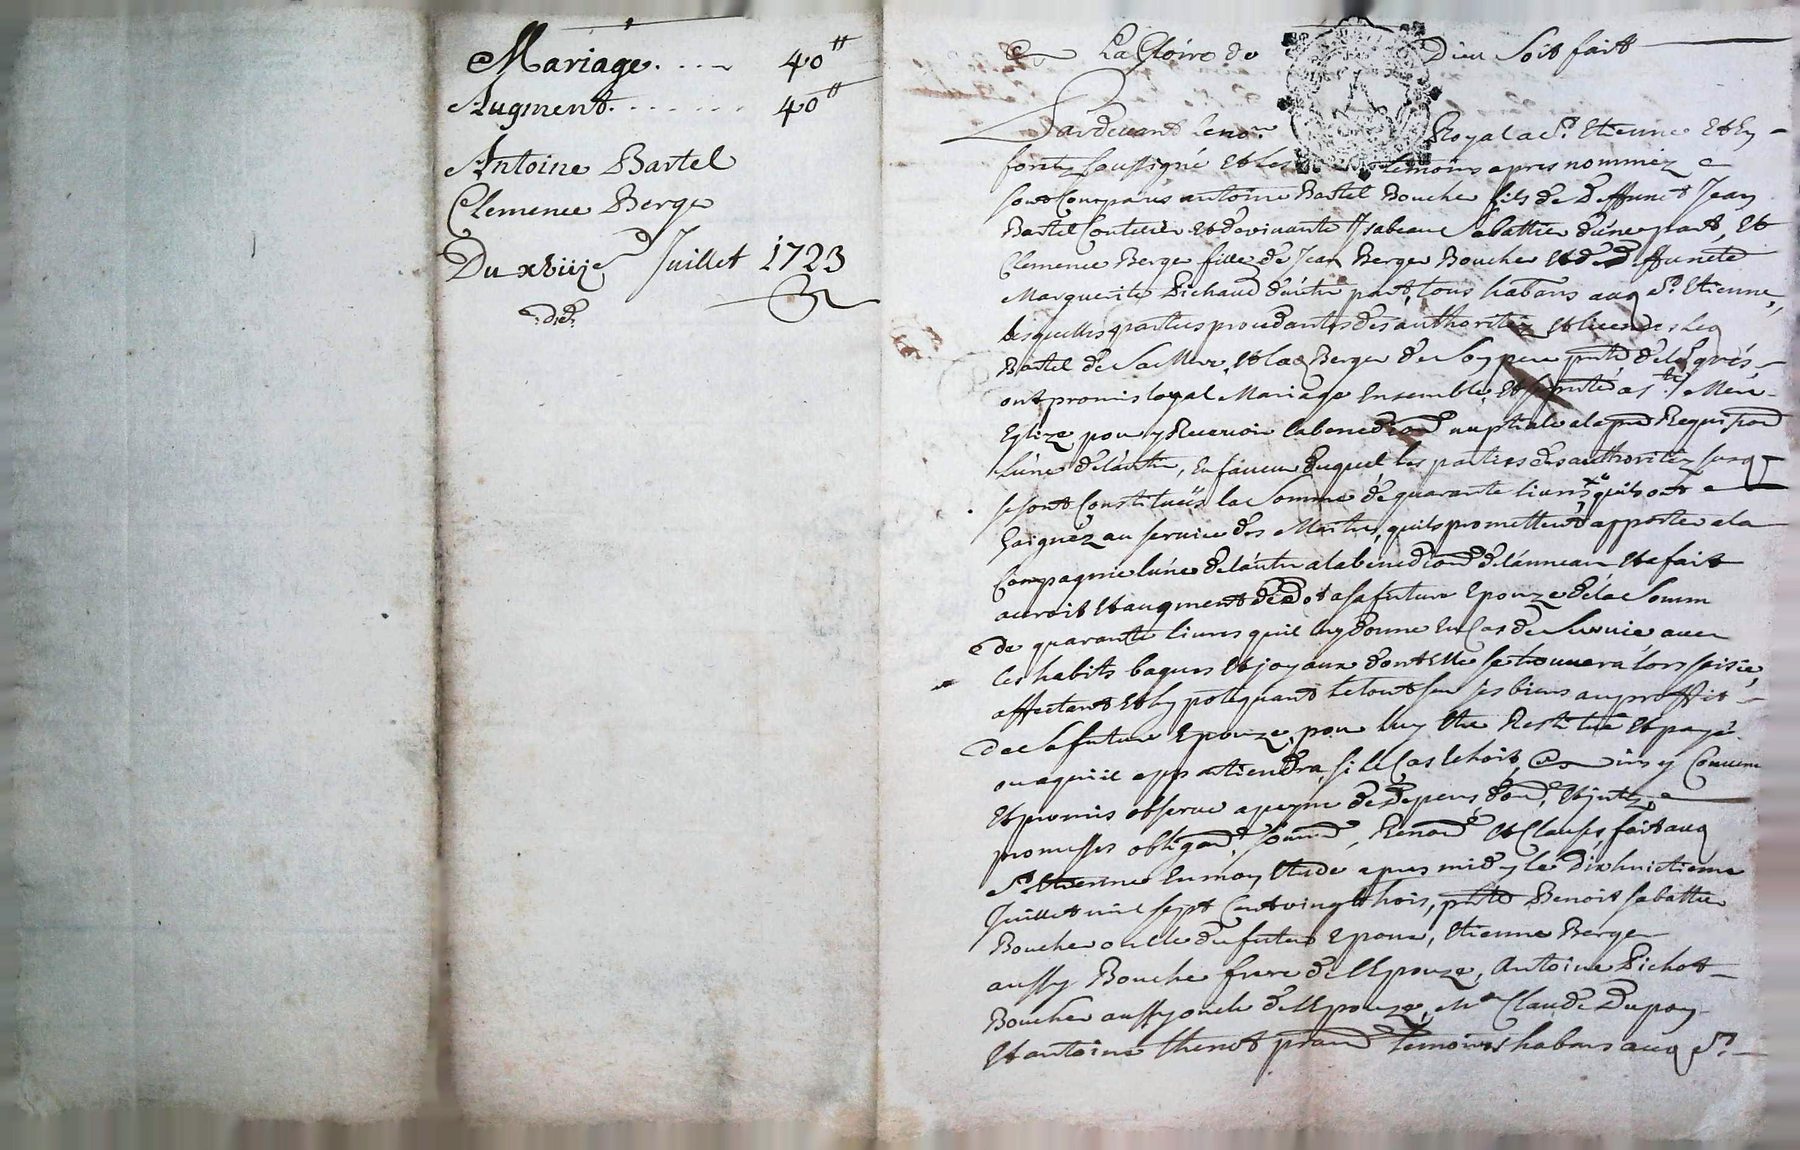 Mariage.... 40tt
Augment....... 40tt
Antoine Bartel
Clemence Berge
Du xviije Juillet 1723
A La Gloire de Dieu Soit fait
Pardevant le nore Royal a St. Etienne Et en
foretz soussigné Et les temoins apres nommez
sont Comparus antoine Bartel Boucher fils de Deffunct Jean
Bartel Coutelier Et de vivante Isabeau Sabattier d'une part, Et
Clemence Berger fille de Jean Berger Boucher Et de Deffuncte
Marguerite Pichaud d'autre part, tous habans aud St. Etienne,
lesquelles parties procedantes des authoritéz Et licences led
Bartel de Sa Mere, Et lad Berger de Son pere
ont promis loyal Mariage Ensemble, Et a ste Mere
Eglize pour y Recevoir la benedon nuptiale a la pre Requison
l'une de l'autre, En faveur duquel les parties des authoritéz susd
se sont Constituées la Somme de quarante livres quils ont
Gaignéz au service des Maitres, quils promettent apporter a la
Compagnie l'une de l'autre a la benedon de l'anneau Et a fait
accroit Et augment de Dot a sa future Epouze de la Somm
e de quarante livres quil luy donne En Cas de Survie avec
les habits bagues Et joyaux dont Elle se trouvera lors saisie,
affectant Et hypotequant le tout sur ses biens au proffit
de Sa future Epouze, pour luy Etre Restitué Et payé
ou a qui il appartiendra, si le Cas Echoit, ainsy Convenu
Et promis observer a peyne de Depens, dom, Et intz,
promesses obligaon, soumon, Renon Et Clauses, fait aud
St. Etienne En mon Etude apres midy le Dixhuictieme
Juillet mil sept Cent vingt trois, Benoit Sabattier
Boucher oncle du futur Epoux, Etienne Berger
aussy Boucher frere de l'Epouze, Antoine Pichot
Boucher aussy oncle de l'Epouze, Me Claude Dupoy
Et antoine thenot temoins habans aud St.